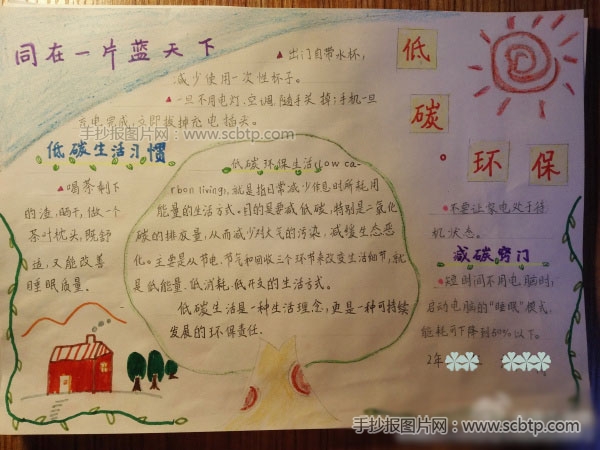 同在一片蓝天下
▲出门自带水杯,
减少使用一次性杯子。
▲一旦不用电灯、空调,随手关掉;手机一旦
充电完成,立即拔掉充电插头。
手抄报图片网:www.scbtp.com
低
碳
环保
低碳生活习惯
▲喝茶剩下
的渣,晒干,做一个
茶叶枕头,既舒
适,又能改善
睡眠质量.
低碳环保生活(low ca-
rbon living),就是指日常减少作息时所耗用
能量的生活方式。目的是要减低碳,特别是二氧化
碳的排放量,从而减少对大气的污染,减缓生态恶
化。主要是从节电、节气和回收三个环节来改变生活细节,就
是低能量、低消耗、低开支的生活方式。
低碳生活是一种生活理念,更是一种可持续
发展的环保责任.
不要让家电处于待
机状态。
减碳窍门
短时间不用电脑时,
启动电脑的“睡眠”模式,
能耗可下降到50%以下。
2年
手抄报图片网:www.scbtp.com